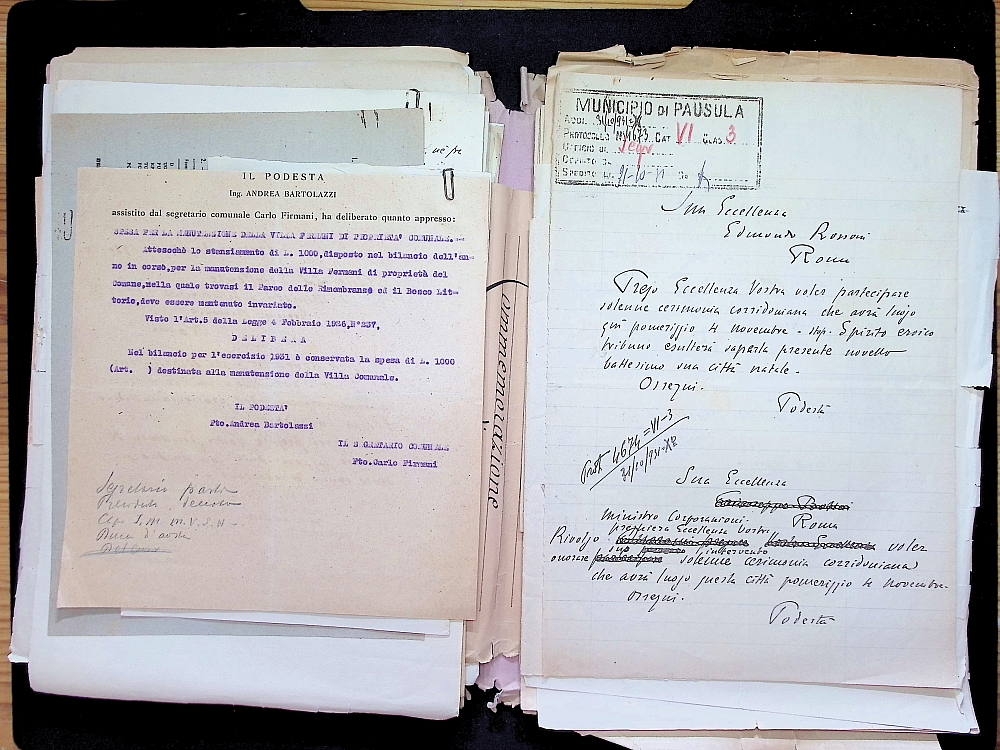 IL PODESTA
Ing. ANDREA BARTOLAZZI
assistito dal segretario comunale Carlo Firmani, ha deliberato quanto appresso:
SPESA PER LA MANUTENZIONE DELLA VILLA FERMANI DI PROPRIETA' COMUNALE.-
Attesochè lo stanziamento di L. 1000,disposto nel bilancio dell'an=
no in corso,per la manutenzione della Villa Fermani di proprietà del
Comune,nella quale trovasi il Parco delle Rimembranze ed il Bosco Lit=
torio,deve essere mantenuto invariato.
Visto l'Art.5 della Legge 4 Febbraio 1926,N°237,
D E L I B E R A
Nel bilancio per l'esercizio 1931 è conservata la spesa di L. 1000
(Art. ) destinata alla manutenzione della Villa Comunale.
IL PODESTA'
Fto.Andrea Bartolazzi
IL SEGRETARIO COMUNALE
Fto.Carlo Firmani
Segretario
S.M. M.V.S.N-
Duca d'Aosta
Commemorazione
MUNICIPIO DI PAUSULA
ADDÌ 31/10/931-IX
PROTOCOLLO N. 4673 CAT VI CLAS. 3
UFFICIO DI Segr
COPIATO DA
SPEDITO IL 31-10-VI DA
Sua Eccellenza
Edmondo Rossoni
Roma
Prego Eccellenza Vostra voler partecipare
solenne cerimonia corridoniana che avrà luogo
qui pomeriggio 4 novembre - stop. Spirito eroico
tribuno esulterà saperla presente novello
battesimo sua città natale.
Ossequi.
Podestà
Prot 4674=VI-3
31/10/931-XE
Sua Eccellenza
Giuseppe Bottai
Ministro Corporazioni.
Roma
preghiera Eccellenza Vostra
Rivolgo voler
suo intervento
onorare partecipare solenne cerimonia corridoniana
che avrà luogo questa città pomeriggio 4 novembre.
Ossequi.
Podestà